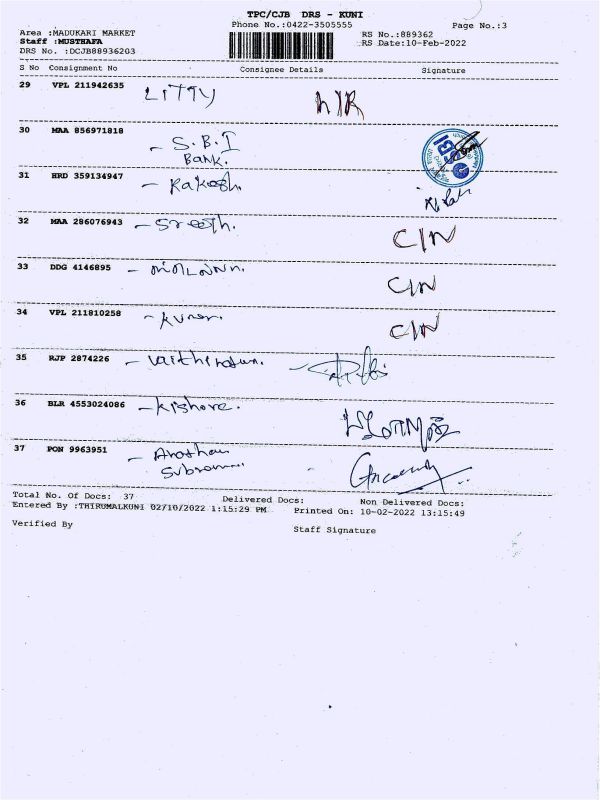 TPC/CJB DRS - KUNI
Phone No.:0422-3505555 Page No.:3
Area :MADUKARI MARKET RS No.:889362
Staff :MUSTHAFA RS Date:10-Feb-2022
DRS No. :DCJB88936203
S No Consignment No Consignee Details Signature
29 VPL 211942635 LITTY
30 MAA 856971818 - S.B.I
BANK.
31 HRD 359134947 - Rakesh.
32 MAA 286076943 - Sreeth. C/N
33 DDG 4146895 - C/N
34 VPL 211810258 - Kumar. C/N
35 RJP 2874226 -
36 BLR 4553024086 - Kishore.
37 PON 9963951 -
Total No. Of Docs: 37 Delivered Docs: Non Delivered Docs:
Entered By :THIRUMALKUNI 02/10/2022 1:15:29 PM Printed On: 10-02-2022 13:15:49
Verified By Staff Signature